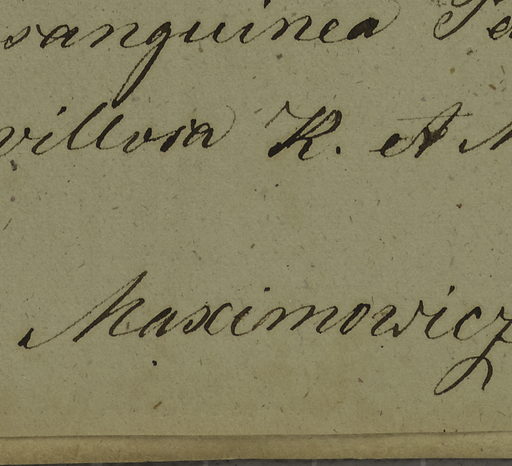 sanguinea Pa
villosa R. et M
Maximowicz